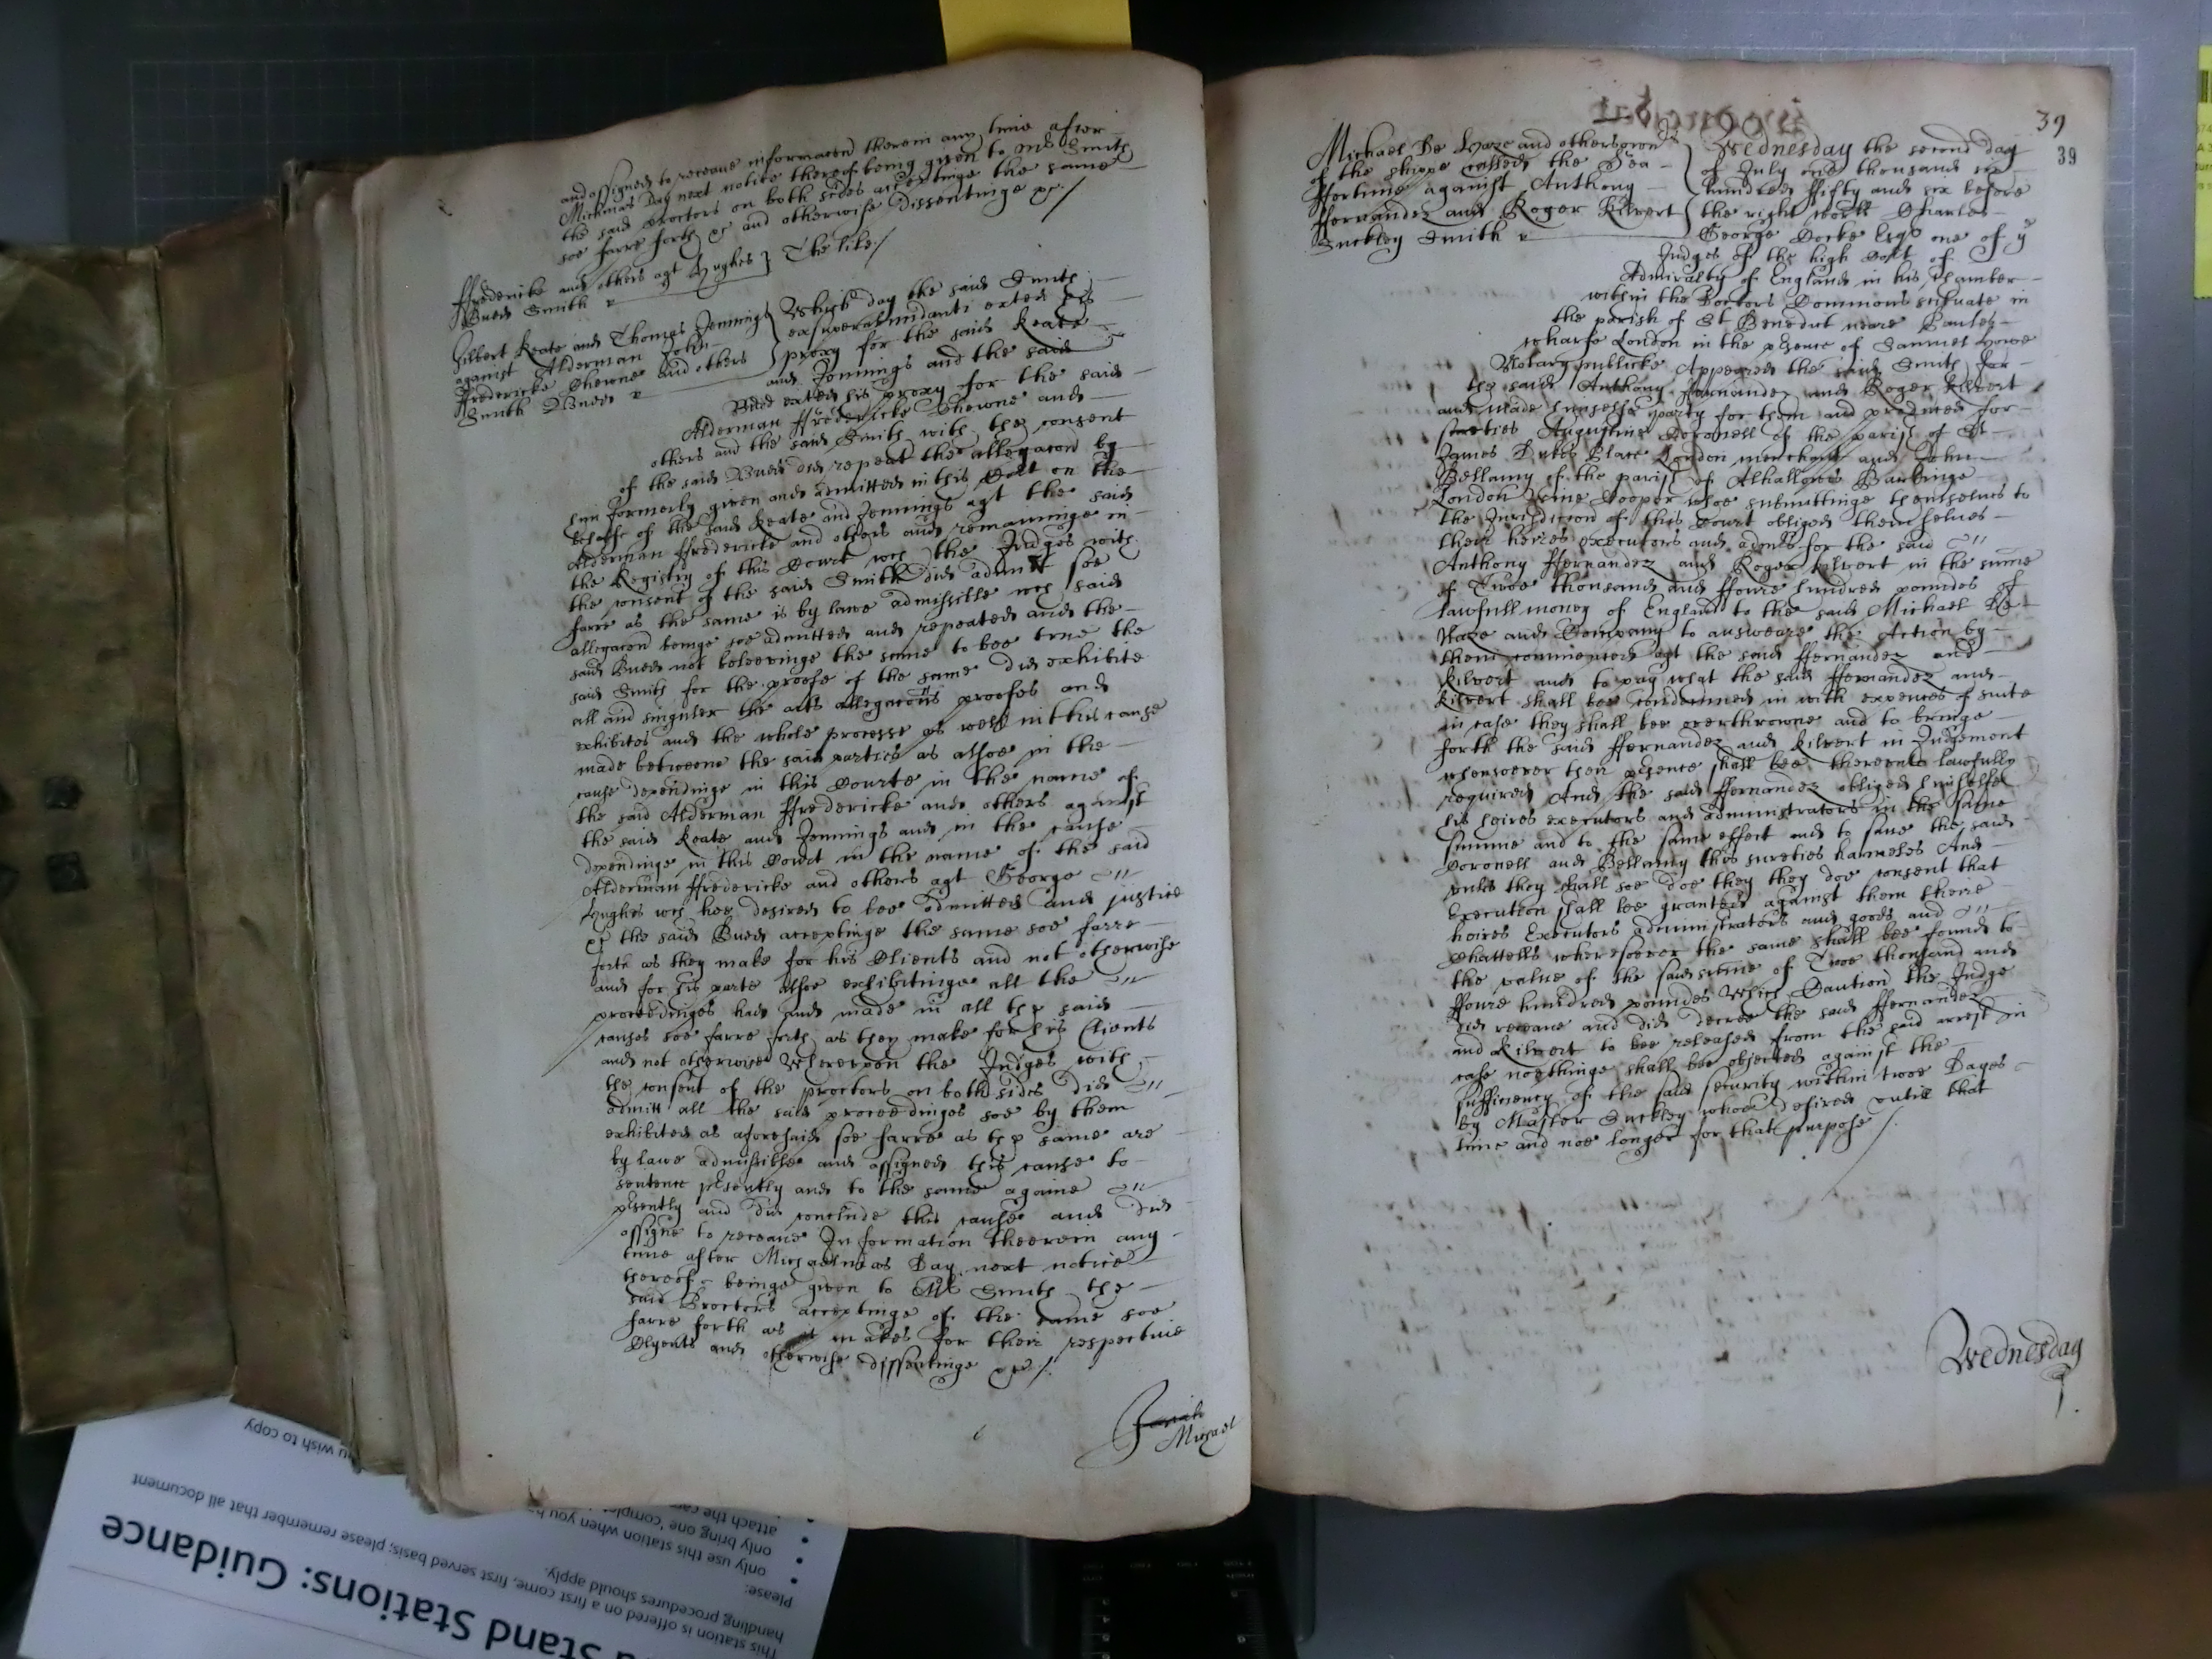 and assigned to receave informacon therein any time after
Michmas Day next notice thereof being given to Mr Smith
the said proctors on both sides acceptinge the same
soe farre forth &c and otherwise dissentinge &c /
Fredericke and others agt Hughes } The like /
Budd Smith
Gilbert Keate and Thomas Jennings
against Alderman John
Fredericke Chowne and others
Smith Budd
Which day the said Smith
ex superabundanti exted his
proxy for the said Keate
and Jennings and the said
Budd exted his proxy for the said
Alderman Fredericke Chowne and
others and the said Smith with the consent
of the said Budd did repeat the allegacon by
him formerly given and admitted in this Cort on the
behalfe of the said Keate and Jennings agt the said
Alderman ffredericke and others and remaininge in
the Registry of this Court wch the Judges with
the consent of the said Smith did admitt soe
farre as the same is by lawe admissible wch said
allegacon beinge soe admitted and repeated and the
said Budd not beleevinge the same to bee true the
said Smith for the proofe of the same did exhibite
all and singuler the acts allegacons proofes and
exhibites and the whole processe as well in this cause
made betweene the said parties as alsoe in the
cause dependinge in this Courte in the name of
the said Alderman ffredericke and others against
the said Keate and Jennings and in the cause
dependinge in this Court in the name of the said
Alderman ffredericke and others agt George
Hughes wch hee desired to bee admitted and justice
&c the said Budd acceptinge the same soe farre
forth as they make for his Clients and not otherwise
and for his parte alsoe exhibitinge all the
proceedinges had and made in all the said
causes soe farre forth as they make for his Clients
and not otherwise Whereupon the Judges with
the consent of the proctors on both sides did
admitt all the said proceedinges soe by them
exhibited as aforesaid soe farre as the same are
by lawe admissible and assigned this cause to
sentence presently and to the same againe
presently and did conclude this cause and did
assigne to receave Information theerein any
time after Michaelmas Day next notice
thereof beinge given to Mr Smith the
said Proctors acceptinge of the same soe
farre forth as it makes for their respective
Clyents and otherwise dissentinge &c /
Michael
39
39
Michael De Haze and others owners
of the shippe called the Sea
ffortune against Anthony
ffernandez and Roger Kilvert
Suckley Smith
Wednesday the second day
of July one thousand six
hundred ffifty and six before
the right worll Charles
George Cocke Esqr one of ye
Judges of the high Cort of
Admiralty of England in his Chamber
within the Doctors Commons scituate in
the parish of St Benedict neare Paules
wharfe London in the presence of Samuel Howe
Notary publicke Appeared the said Smith for
the said Anthony ffernandez and Roger Kilvert
and made himselfe party for them and produced for
sureties Augustine Coronell of the parish of St
James Dukes Place London merchant and John
Bellamy of the parish of Alhallowes Barkinge
London Wine Cooper whoe submittinge themselves to
the Jurisdiction of this Court obliged themselves
their heires executors and admts for the said
Anthony ffernandez and Roger Kilvert in the summe
of Twoe thousand and ffoure hundred poundes of
lawfull money of England to the said Michael De
Haze and Company to answeare the Action by
them commenced agt the said ffernandez and
Kilvert and to pay what the said ffernandez and
Kilvert shall bee condemned in with expences of suite
in case they shall bee overthrowne and to bringe
forth the said ffernandez and Kilvert in Judgement
whensoever their presence shall bee thereunto lawfully
required And the said ffernandez obliged himselfe
his heires executors and administrators in the same
summe and to the same effect and to save the said
Coronell and Bellamy his sureties harmeles And
unles they shall soe doe they they doe consent that
Execution shall bee granted against them theire
heires Executors administrators and goods and
Chattells wheresoever the same shall bee found to
the value of the said summe of Twoe thousand and
ffoure hundred poundes Which Caution the Judge
did receave and did decree the said ffernandez
and Kilvert to bee released from the said arrest in
case noethinge shall bee objected against the
sufficiency of the said security within twoe Dayes
by Master Suckley whoe desired untill that
time and noe longer for that purpose /
Wednesday
Stand Stations: Guidance
This station is offered on a first come, first served basis; please remember that all document
handling procedures should apply.
Please:
only use this station when you
only bring one
attach the
you wish to copy